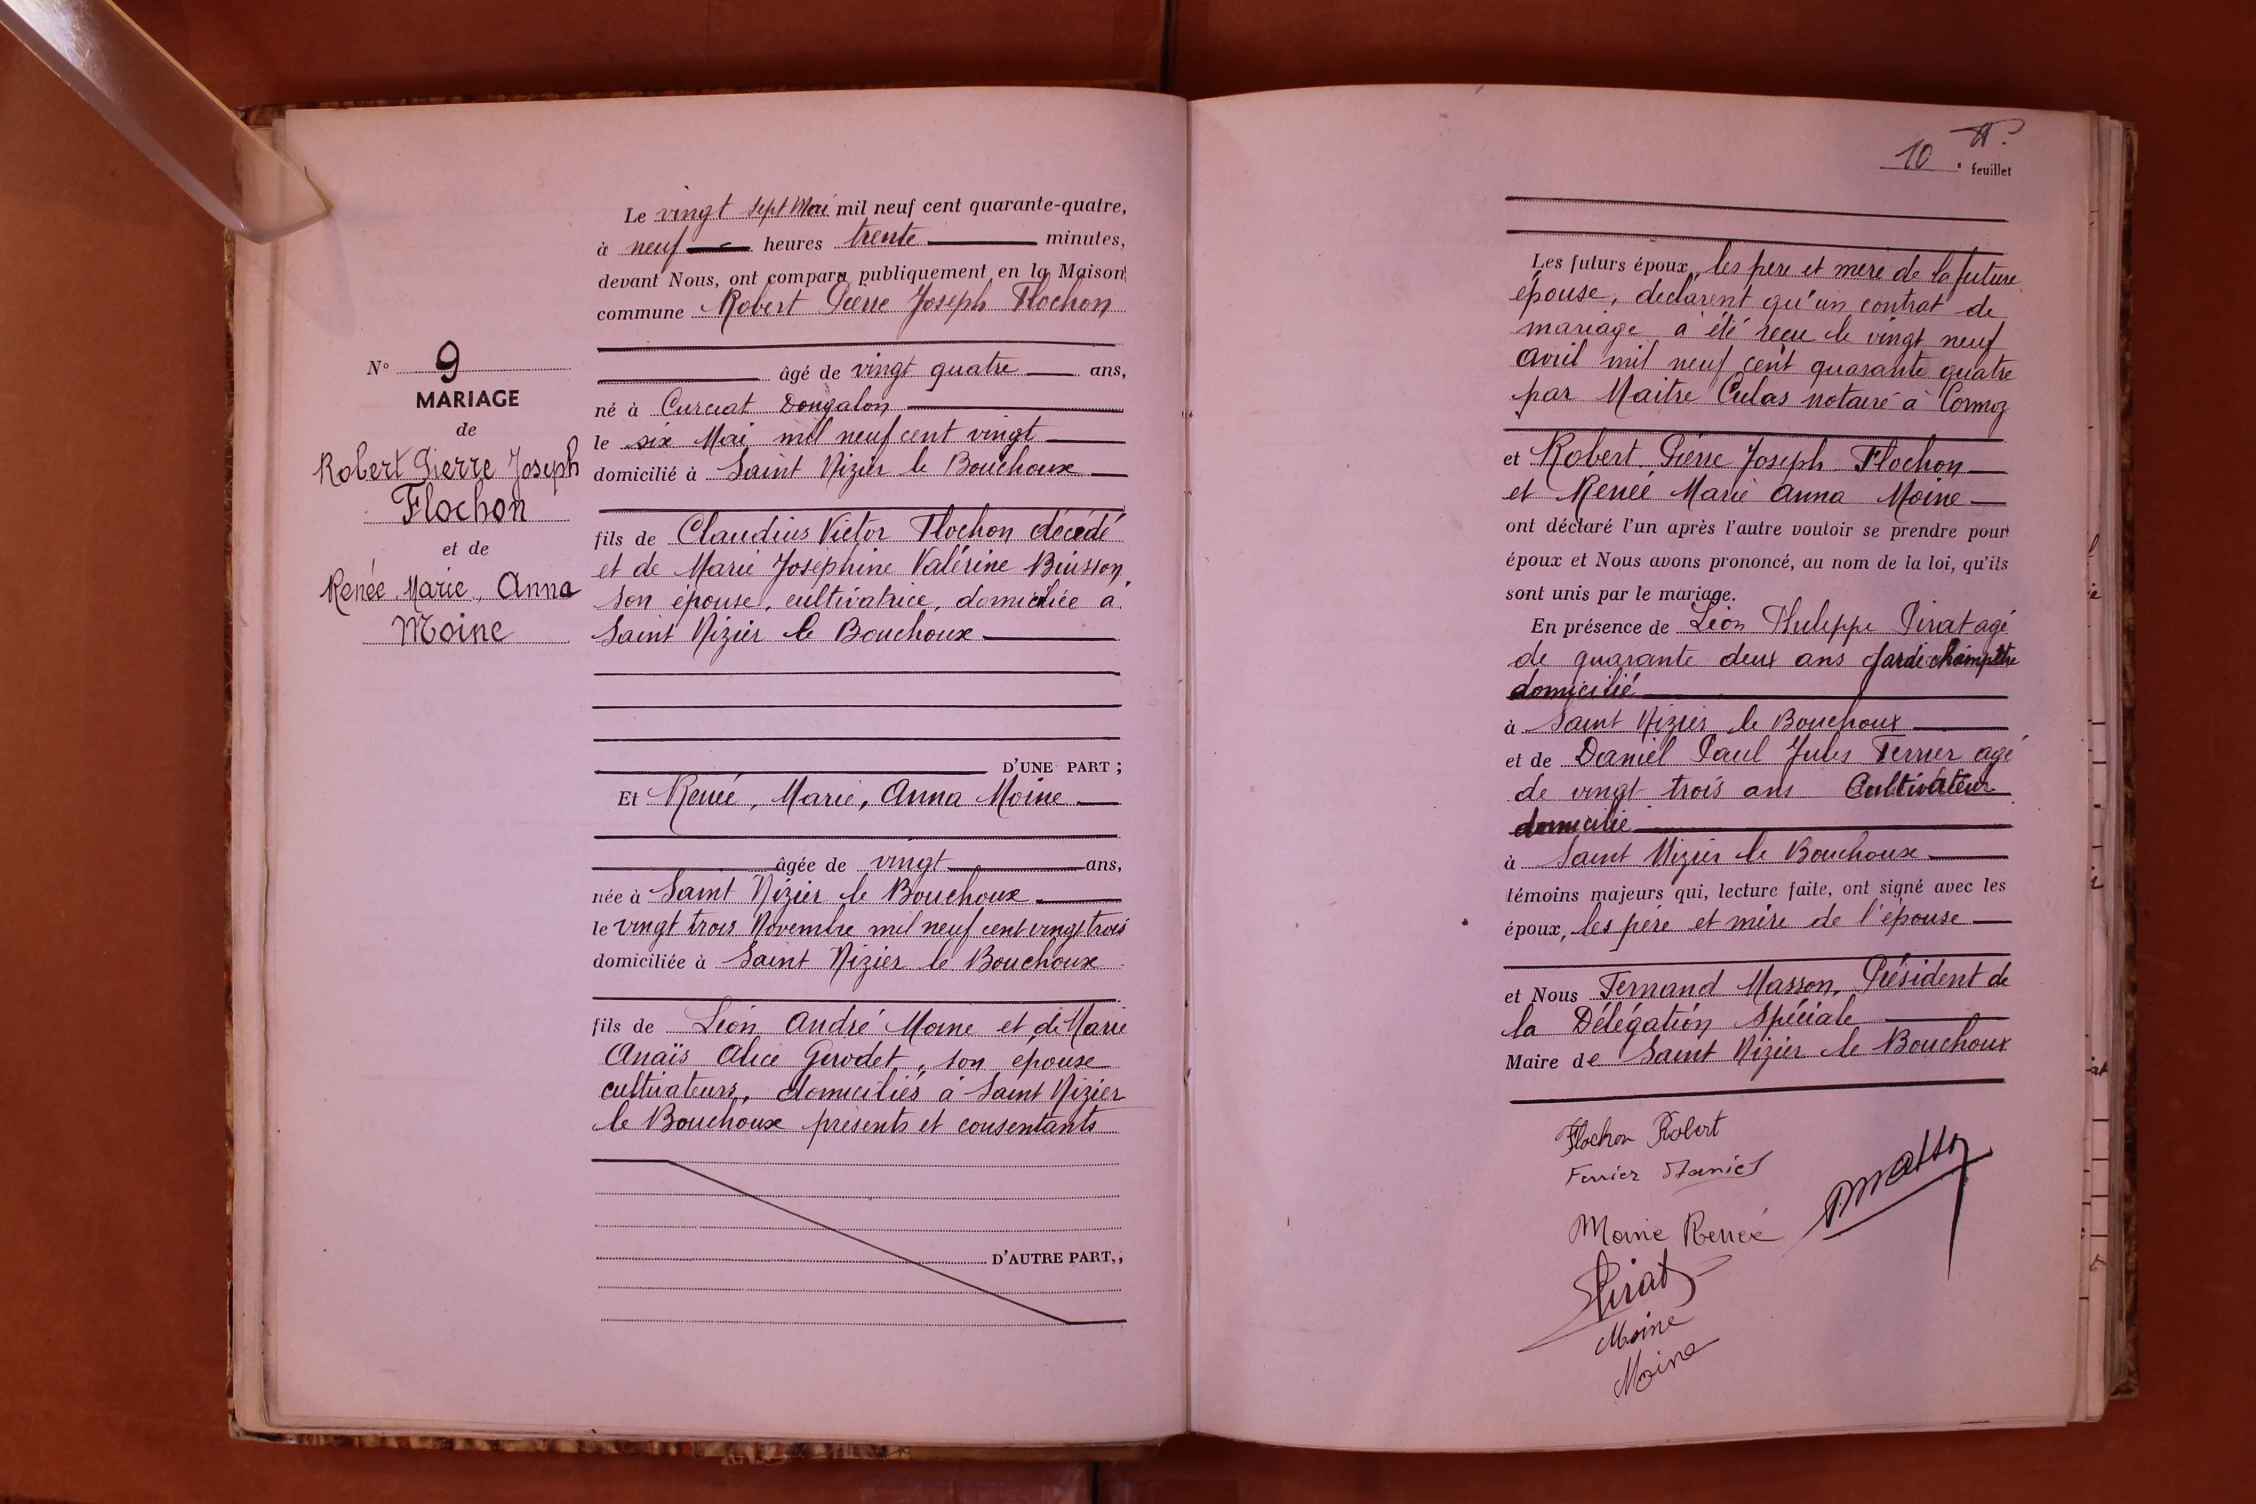 N° 9
MARIAGE
de
Robert Pierre Joseph
Flochon
et de
Renée, Marie, Anna
Moine
Le vingt sept Mai mil neuf cent quarante-quatre,
à neuf heures trente minutes,
devant Nous, ont comparu publiquement en la Maison
commune Robert Pierre Joseph Flochon
âgé de vingt quatre ans,
né à Curciat Dongalon
le six Mai mil neuf cent vingt
domicilié à Saint Nizier le Bouchoux
fils de Claudius Victor Flochon décédé
et de Marie Joséphine Valérine Buisson,
son épouse, cultivatrice, domiciliée à
Saint Nizier le Bouchoux
D'UNE PART ;
Et Renée, Marie, Anna Moine
âgée de vingt ans,
née à Saint Nizier le Bouchoux
le vingt trois Novembre mil neuf cent vingt trois
domiciliée à Saint Nizier le Bouchoux
fils de Léon André Moine et de Marie
Anaïs Alice Gerodet, son épouse
cultivateurs, domiciliés à Saint Nizier
le Bouchoux présents et consentants
D'AUTRE PART,;
10 . feuillet
Les futurs époux, les père et mère de la future
épouse, déclarent qu'un contrat de
mariage a été reçu le vingt neuf
avril mil neuf cent quarante quatre
par Maitre Culas notaire à Cormoz
et Robert Pierre Joseph Flochon
et Renée Marie Anna Moine
ont déclaré l'un après l'autre vouloir se prendre pour
époux et Nous avons prononcé, au nom de la loi, qu'ils
sont unis par le mariage.
En présence de Léon Philippe Pirat agé
de quarante deux ans Garde champêtre
domicilié
à Saint Nizier le Bouchoux
et de Daniel Paul Jules Ferrier agé
de vingt trois ans Cultivateur
domicilié
à Saint Nizier le Bouchoux
témoins majeurs qui, lecture faite, ont signé avec les
époux, les père et mère de l'épouse
et Nous Fernand Masson, Président de
la Délégation Spéciale
Maire de Saint Nizier le Bouchoux
Flochon Robert
Ferrier Daniel
Masson
Moine Renée
Pirat
Moine
Moine